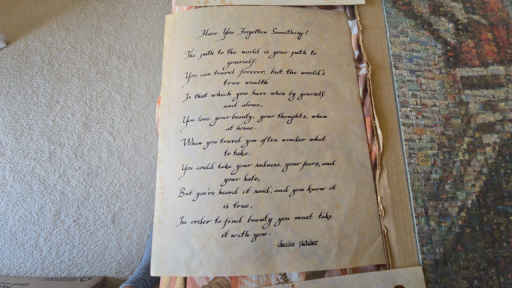 Have You Forgotten Something?
The path to the world is your path to
yourself.
You can travel forever, but the world's
true wealth
Is that which you have when by yourself
and alone.
You love your beauty, your thoughts, when
at home.
When you travel you often wonder what
to take.
You could take your sadness, your fears, and
your hate,
But you've heard it said, and you know it
is true,
In order to find beauty you must take
it with you.